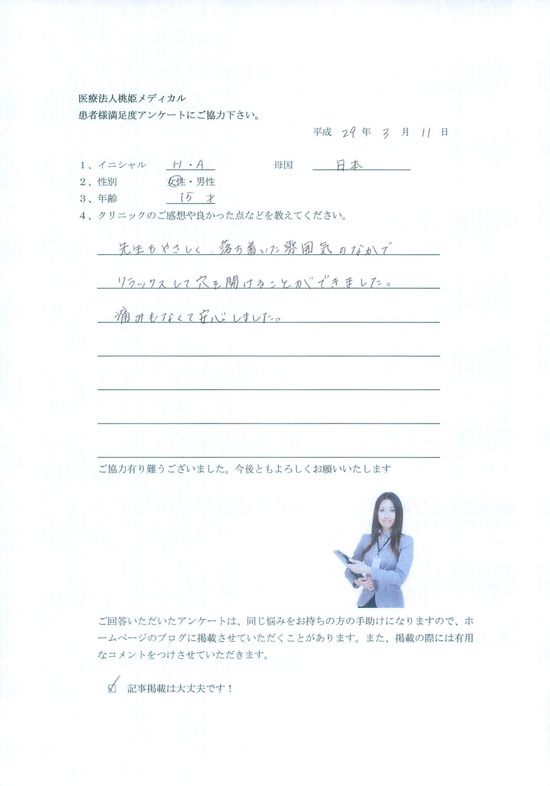 医療法人桃姫メディカル
患者様満足度アンケートにご協力下さい。
平成 29 年 3 月 11 日
1、イニシャル H・A 母国 日本
2、性別 女性・男性
3、年齢 15 才
4、クリニックのご感想や良かった点などを教えてください。
先生もやさしく、落ち着いた雰囲気のなかで
リラックスして穴を開けることができました。
痛みもなくて安心しました。
ご協力有り難うございました。今後ともよろしくお願いいたします
ご回答いただいたアンケートは、同じ悩みをお持ちの方の手助けになりますので、ホ
ームページのブログに掲載させていただくことがあります。また、掲載の際には有用
なコメントをつけさせていただきます。
☑ 記事掲載は大丈夫です！